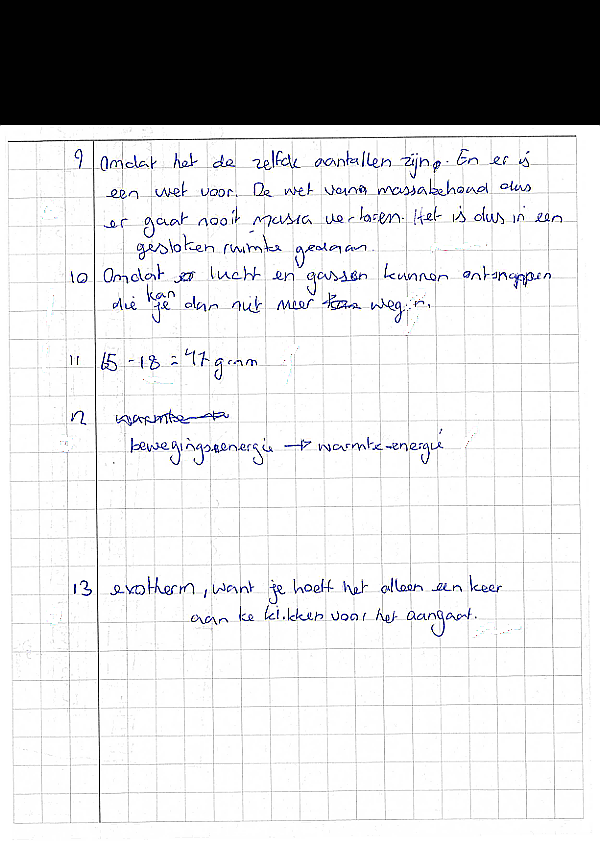 9 Omdat het de zelfde aantallen zijn. En er is
een wet voor. De wet van massabehoud dus
er gaat nooit massa verloren. Het is dus in een
gesloten ruimte gedaan.
10 Omdat er lucht en gassen kunnen ontsnappen
die kan je dan niet meer wegen.
11 65 - 18 = 47 gram
12 warmte
bewegingsenergie → warmte-energie
13 exotherm, want je hoeft het alleen een keer
aan te klikken voor het aangaat.